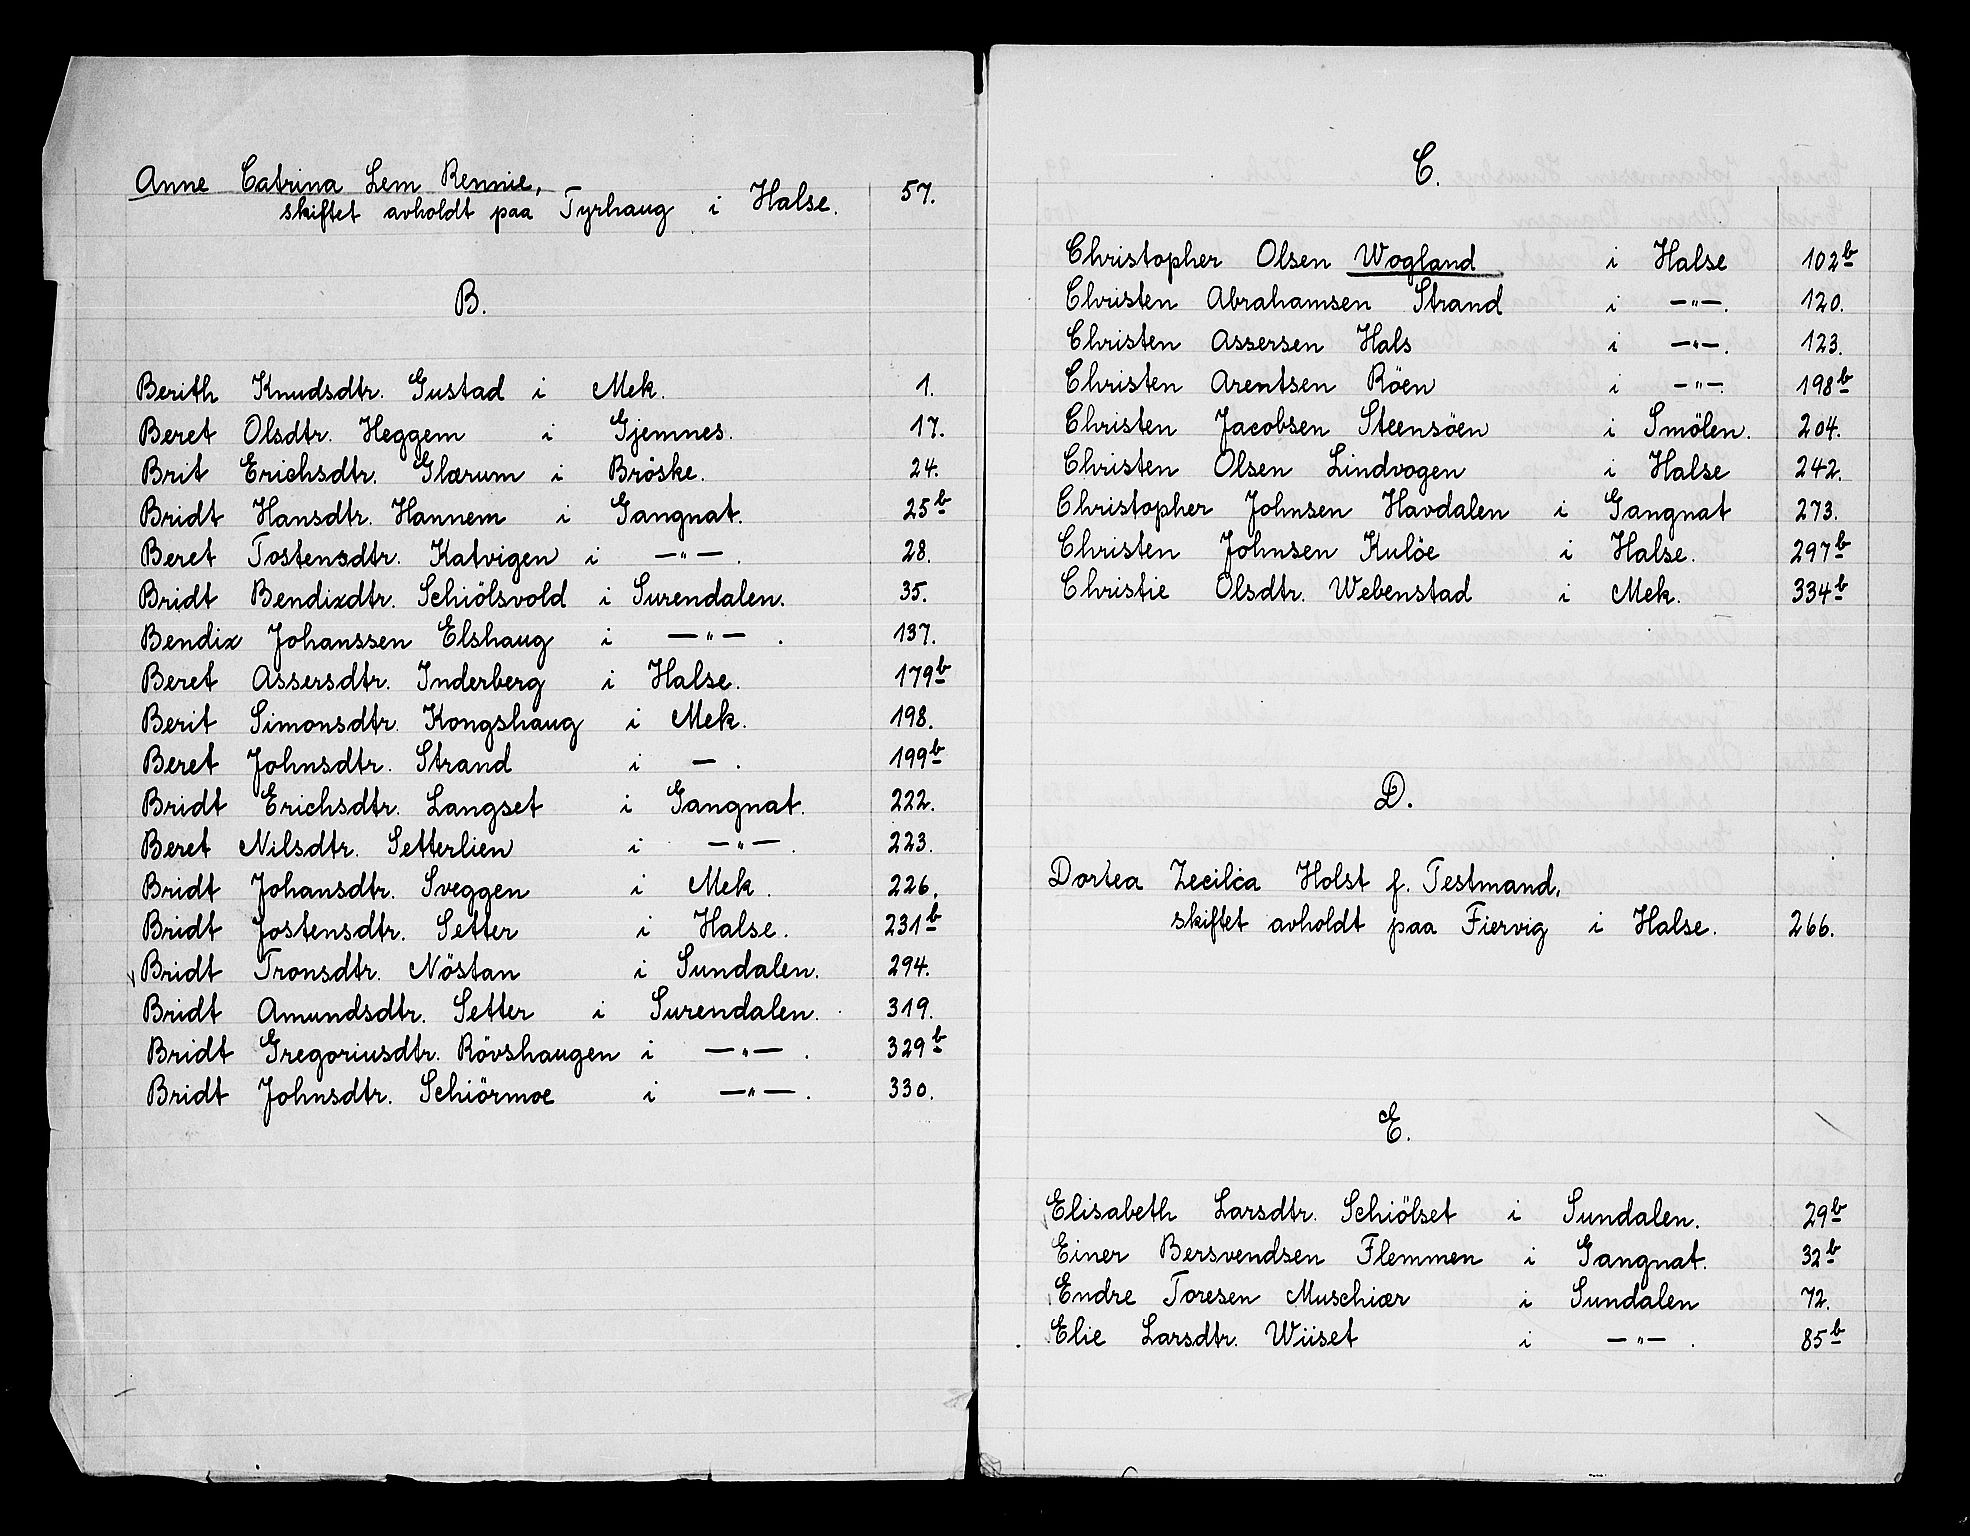 Anne Catrina Lem Rennie,
skiftet avholdt paa Tyrhaug i Halse. 57.
B.
Berith Knudsdtr. Gustad i Mek. 1.
Beret Olsdtr. Heggem i Gjemnes. 17.
Brit Erichsdtr. Glærum i Bröske. 24.
Bridt Hansdtr. Hannem i Gangnat. 25b
Beret Tostensdtr. Katvigen i —"—. 28.
Bridt Bendixdtr. Schiölsvold i Surendalen. 35.
Bendix Johanssen Elshaug i —"—. 137.
Beret Assersdtr. Inderberg i Halse. 179b
Berit Simonsdtr. Kongshaug i Mek. 198.
Beret Johnsdtr. Strand i —. 199b
Bridt Erichsdtr. Langset i Gangnat. 222.
Beret Nilsdtr. Setterlien i —"—. 223.
Bridt Johansdtr. Sveggen i Mek. 226.
Bridt Jostensdtr. Setter i Halse. 231b
Bridt Tronsdtr. Nöstan i Sundalen. 294.
Bridt Amundsdtr. Setter i Surendalen. 319.
Bridt Gregoriusdtr. Rövshaugen i —"—. 329b
Bridt Johnsdtr. Schiörmoe i —"—. 330.
C.
Christopher Olsen Wogland i Halse 102b
Christen Abrahamsen Strand i —"—. 120.
Christen Assersen Hals i —"—. 123.
Christen Arentsen Röen i —"—. 198b
Christen Jacobsen Steensöen i Smölen. 204.
Christen Olsen Lindvogen i Halse 242.
Christopher Johnsen Havdalen i Gangnat 273.
Christen Johnsen Kulöe i Halse. 297b
Christie Olsdtr. Webenstad i Mek. 334b
D.
Dortea Zecilia Holst f. Testmand,
skiftet avholdt paa Fiervig i Halse. 266.
E.
Elisabeth Larsdtr. Schiölset i Sundalen. 29b
Einer Bersvendsen Flemmen i Gangnat. 32b
Endre Toresen Muschiær i Sundalen 72.
Elie Larsdtr. Wiiset i —"—. 85b